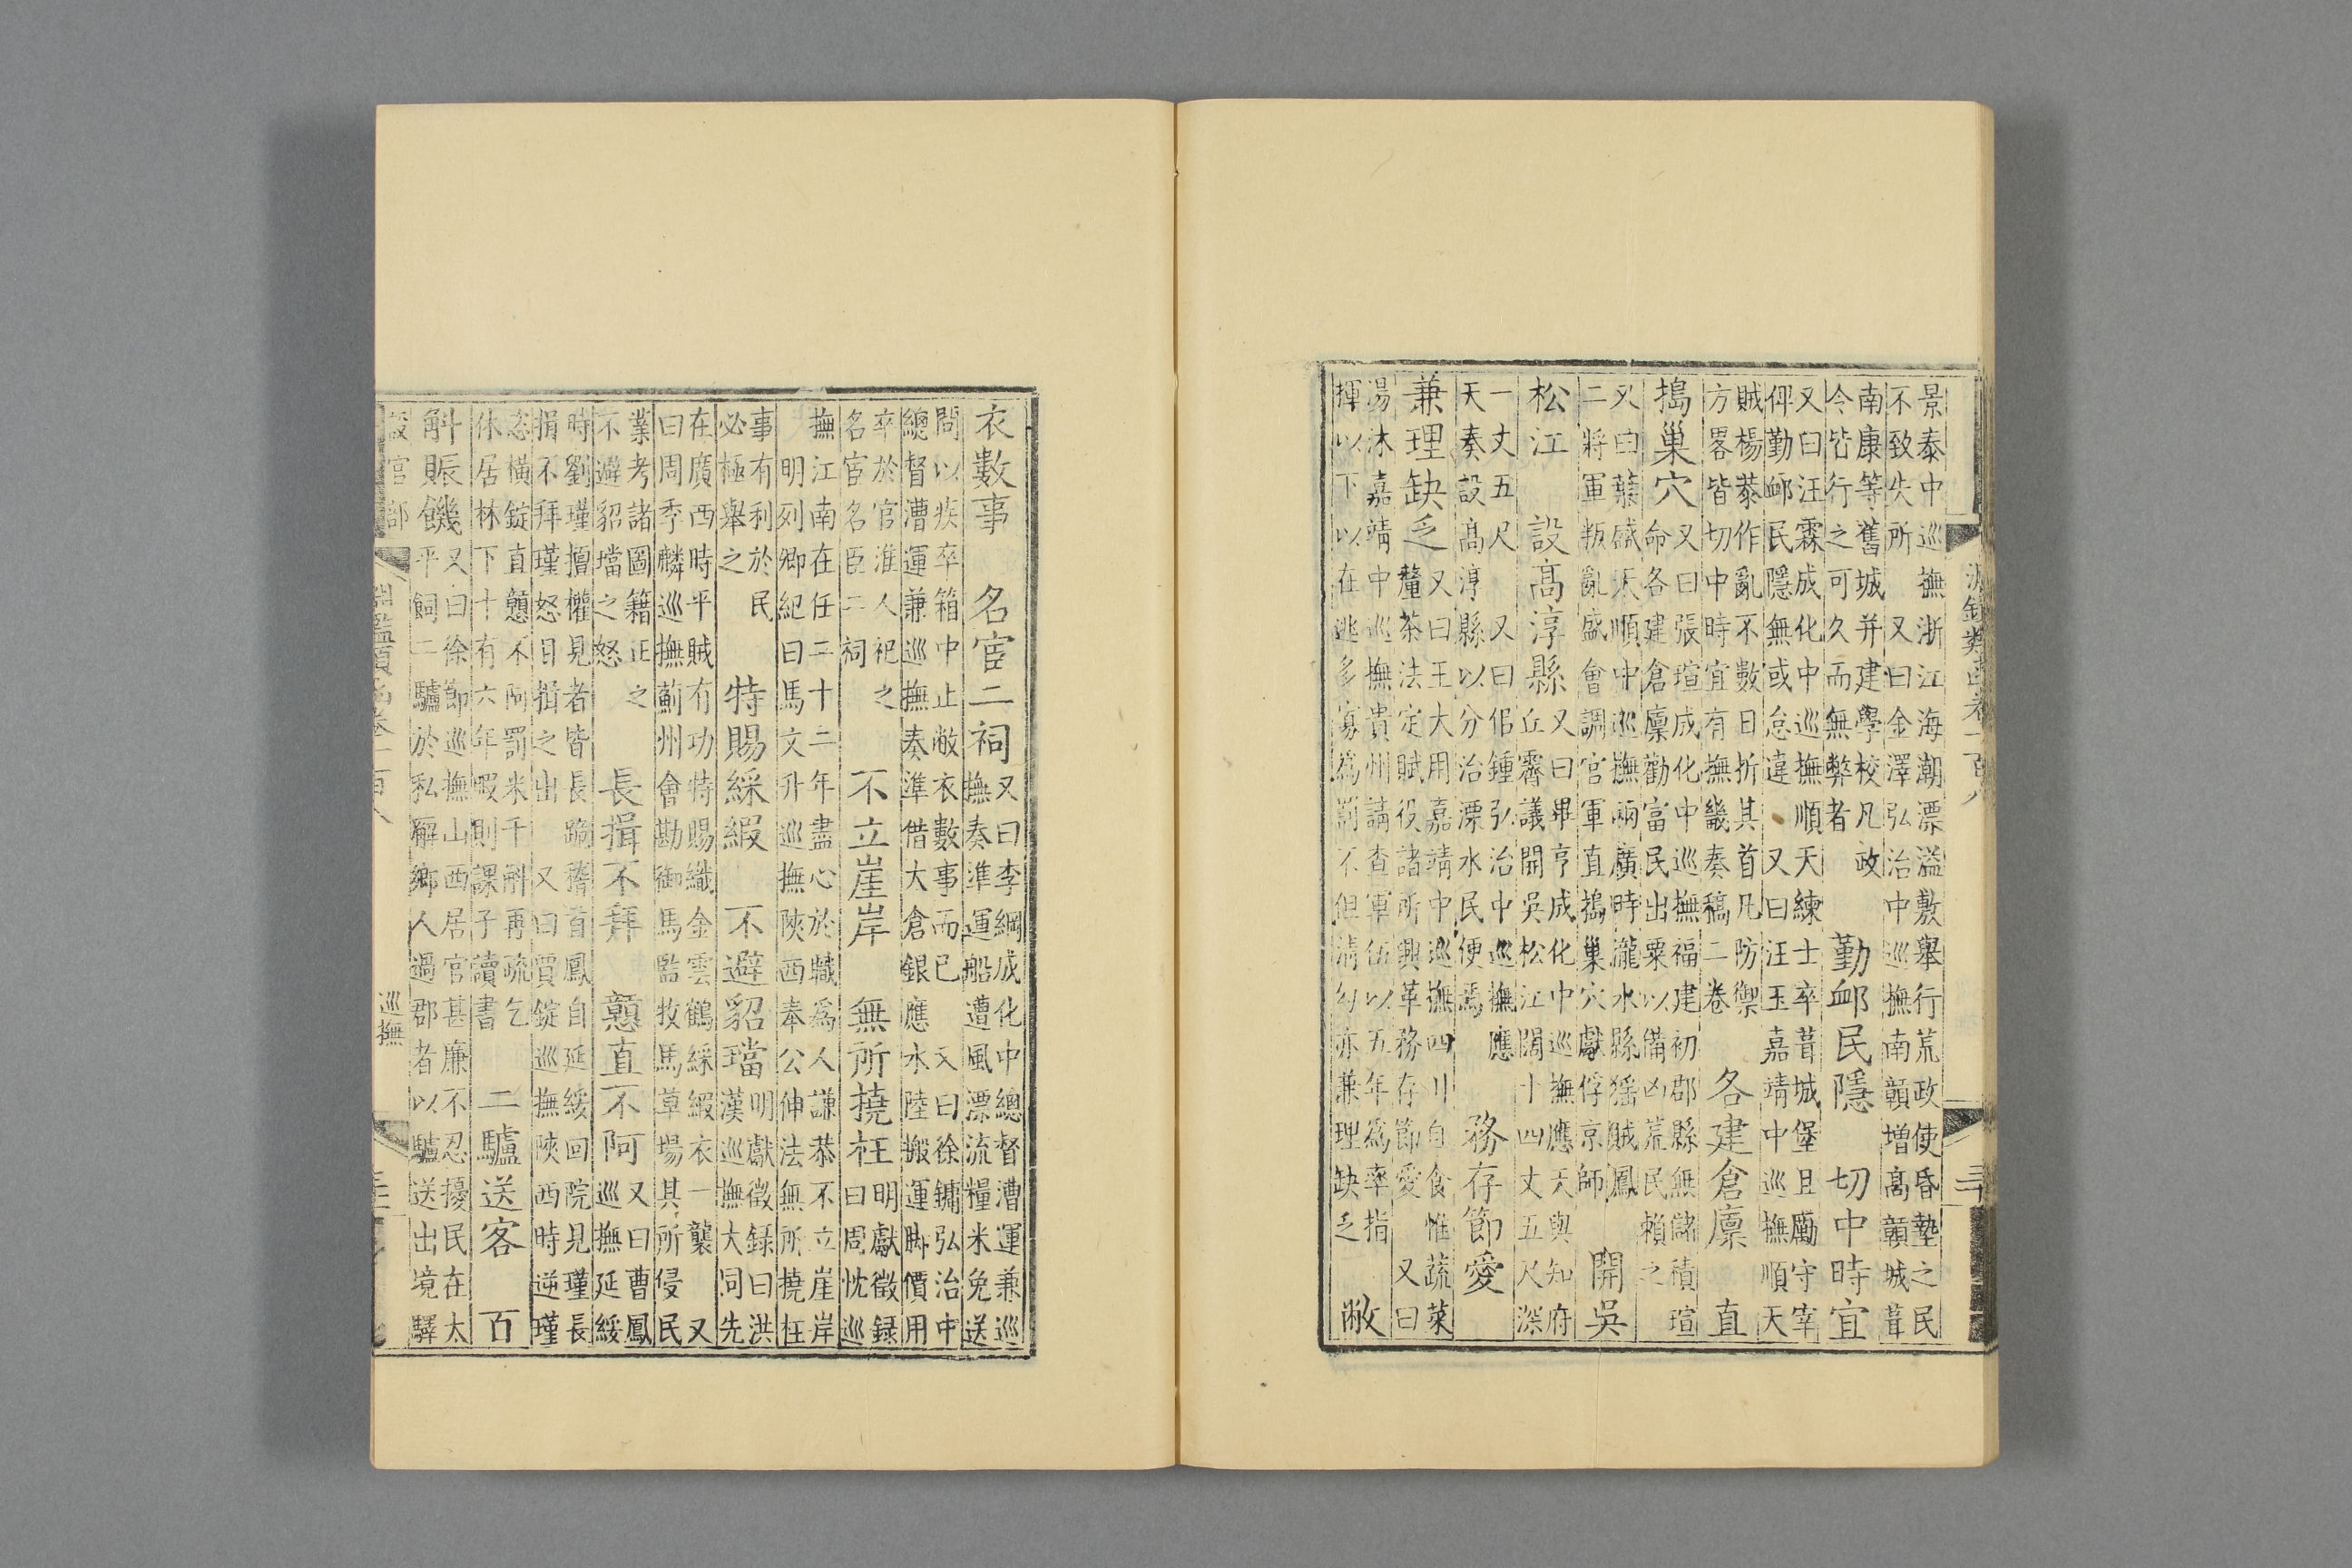 淵鑑類函卷一百八
景泰中巡撫浙江海潮漂溢敷舉行荒政使昏墊之民
不致失所　又曰金澤弘治中巡撫南贛增高贛城葺
南康等舊城并建學校凡政
令皆行之可久而無弊者
勤䘏民隱　切中時宜
又曰汪霖成化中巡撫順天練士卒葺城堡且勵守宰
俾勤䘏民隱無或怠違　又曰汪玉嘉靖中巡撫順天
賊楊作亂不數日折其首凡防禦
方畧皆切中時宜有撫畿奏稿二卷
各建倉廩　直
搗巢穴
又曰張瑄成化中巡撫福建初郡縣無儲積瑄
命各建倉廩勸富民出粟以備凶荒民賴之
又曰葉盛天順中巡撫兩廣時瀧水縣猺賊鳳
二將軍叛亂盛會調官軍直搗巢穴獻俘京師
開吳
松江　設高淳縣
又曰畢亨成化中巡撫應天與知府
丘霽議開吳松江闊十四丈五尺深
一丈五尺　又曰佀鍾弘治中巡撫應
天奏設高淳縣以分治漂水民便焉
務存節愛
兼理缺乏
又曰王大用嘉靖中巡撫四川自食惟蔬菜
釐茶法定賦役諸所興革務存節愛　又曰
湯沐嘉靖中巡撫貴州請查軍伍以五年爲率指
揮以下以在逃多寡爲罰不但清勾亦兼理缺乏
敝
衣數事　名宦二祠
又曰李綱成化中總督漕運兼巡
撫奏準運船遭風漂流糧米免送
問以疾卒箱中止敝衣數事而已　又曰徐鏞弘治中
總督漕運兼巡撫奏準借大倉銀應水陸搬運脚價用
卒於官淮人祀之
名宦名臣二祠
不立崖岸　無所撓枉
明獻徵録
曰周忱巡
撫江南在任二十二年盡心於職爲人謙恭不立崖岸
明列卿紀曰馬文升巡撫陝西奉公伸法無所撓枉
事有利於民
必極舉之
特賜綵緞　不避貂璫
明獻徵録曰洪
漢巡撫大同先
在廣西時平賊有功特賜織金雲鶴綵緞衣一襲　又
曰周季麟巡撫薊州會勘御馬監牧馬草場其所侵民
業考諸圖籍正之
不避貂璫之怒
長揖不拜　戇直不阿
又曰曹鳳
巡撫延綏
時劉瑾擅權見者皆長跪稽首鳳自延綏回院見瑾長
揖不拜瑾怒目揖之出　又曰賈錠巡撫陝西時逆瑾
恣橫錠直戇不阿罰米千斛再疏乞
休居林下十有六年暇則課子讀書
二驢送客　百
斛賑饑
又曰徐節巡撫山西居官甚廉不忍擾民在太
平飼二驢於私廨鄉人過郡者以驢送出境驛
淵鑑類函卷一百八　巡撫